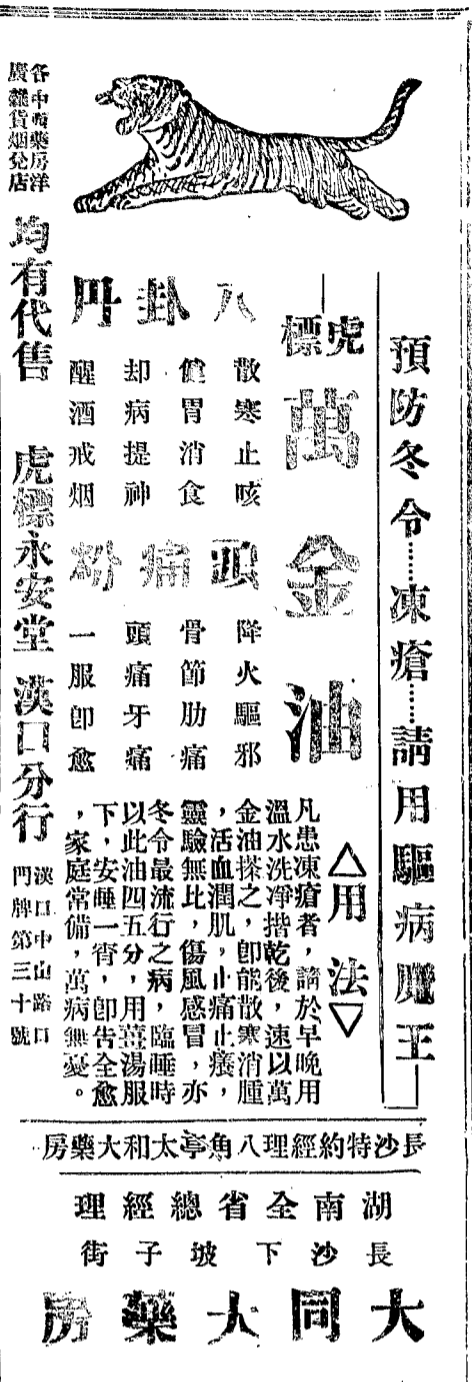 預防冬令……凍瘡……請用驅病魔王
虎標
萬金油
△用法▽
凡患凍瘡者，請於早晚用
溫水洗凈揩乾後，速以萬
金油搽之，卽能散寒消腫
，活血潤肌，止痛止癢，
靈驗無比，傷風感冒，亦
冬令最流行之病，臨睡時
以此油四五分，用薑湯服
下，安睡一宵，卽告全愈
，家庭常備，萬病無憂。
八卦丹
散寒止咳
健胃消食
却病提神
醒酒戒烟
頭痛粉
降火驅邪
骨節肋痛
頭痛牙痛
一服卽愈
各中西藥房洋
廣雜貨烟兌店
均有代售
虎標永安堂漢口分行
漢口中山路口
門牌第三十號
長沙特約經理八角亭太和大藥房
湖南全省總經理
長沙下坡子街
大同大藥房